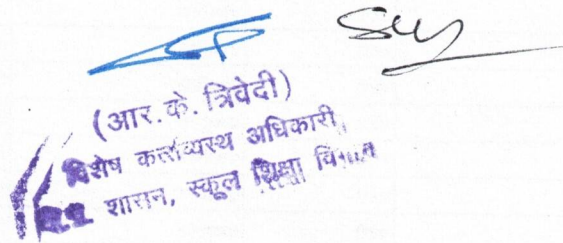 (आर.के. त्रिवेदी)
विशेष कर्त्तव्यस्थ अधिकारी,
शासन, स्कूल शिक्षा विभाग